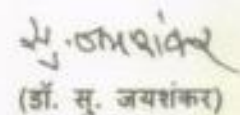 सु. जयशंकर
(डॉ. सु. जयशंकर)